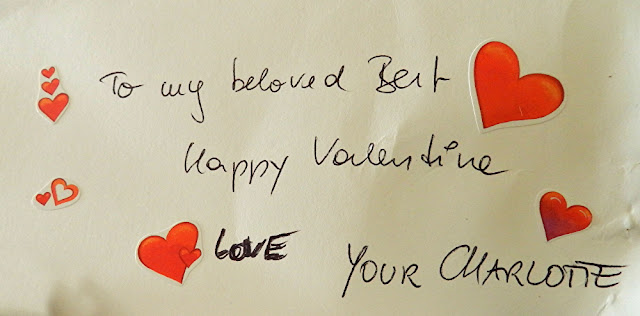 To my beloved Bert
Happy Valentine
LOVE YOUR CHARLOTTE